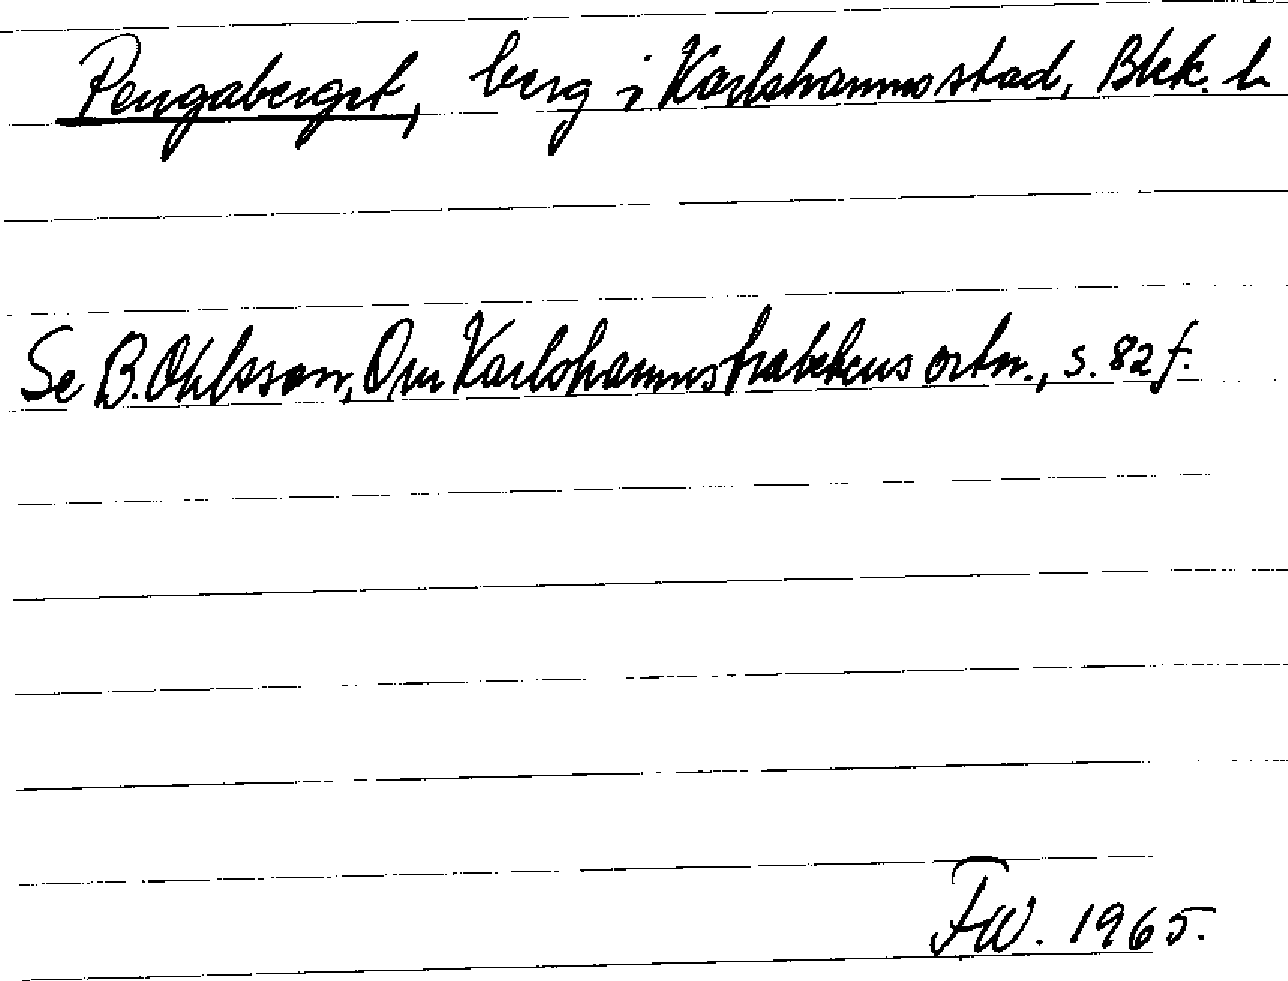 Pengaberget, berg i Karlshamns stad, Blek. l.
Se B. Ohlsson, Om Karlshamnstraktens ortn., s. 82 f.
FW. 1965.